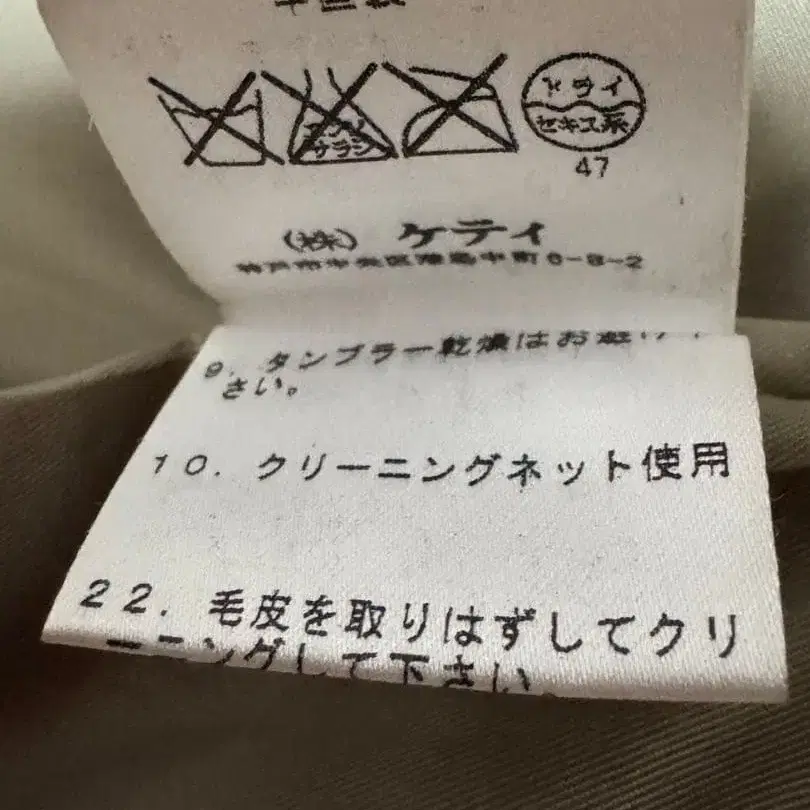 エンソ
サラシ
ドライ
セキユ系
47
(株) ケティ
神戸市中央区港島中町6-8-2
9. タンブラー乾燥はお避け
さい。
10. クリーニングネット使用
22. 毛皮を取りはずしてクリ
ーニングして下さい。